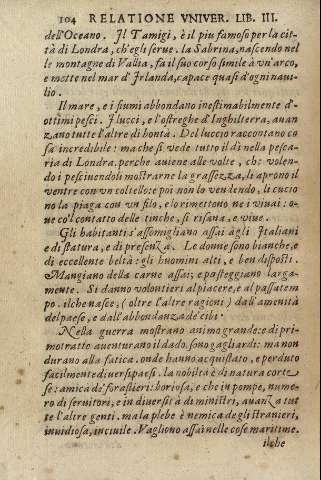 104 RELATIONE VNIVER. LIB. III.
dell'Oceano. Il Tamigi, è il piu famoso per la cit-
tà di Londra, ch'egli serue. la Sabrina, nascendo nel
le montagne di Vallia, fa il suo corso simile à vn'arco,
e mette nel mar d'Irlanda, capace quasi d'ogni naui-
lio.
Il mare, e i fiumi abbondano inestimabilmente d'-
ottimi pesci. I lucci, e l'ostreghe d'Inghilterra, auan
zano tutte l'altre di bontà. Del luccio raccontano co
sa incredibile: ma che si vede tutto il dì nella pesca-
ria di Londra. perche auiene alle volte, che volen-
do i pesciuendoli mostrarne la grassezza, li aprono il
ventre con vn coltello: e poi non lo vendendo, li cucio
no la piaga con vn filo, e lo rimettono ne i viuai: o-
ue co'l contatto delle tinche, si risana, e viue.
Gli habitanti s'assomigliano assai àgli Italiani
e di statura, e di presenza. Le donne sono bianche, e
di eccellente beltà: gli huomini alti, e ben disposti.
Mangiano della carne assai; e passeggiano larga-
mente. Si danno volontieri al piacere, e al passatem
po. ilche nasce, (oltre l'altre ragioni) dall'amenità
del paese, e dall'abbondanza de' cibi.
Nella guerra mostrano animo grande: e di pri-
mo tratto auenturano il dado. sono gagliardi: ma non
durano alla fatica. onde hanno acquistato, e perduto
facilmente diuersi paesi. la nobiltà è di natura corte
se: amica de' forastieri: boriosa, e che in pompe, nume
ro di seruitori, e in diuersità di ministri, auanza tut
te l'altre genti. ma la plebe è nemica degli stranieri,
inuidiosa, inciuile. Vagliono assai nelle cose maritime.
ilche